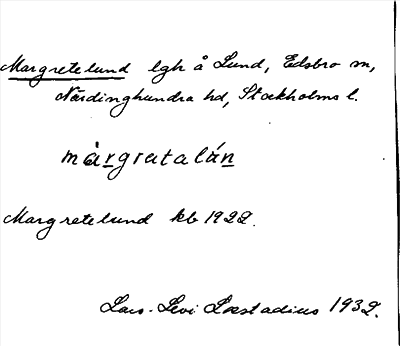 Margretelund lgh å Lund, Edsbro sn,
Närdinghundra hd, Stockholms l.
màrgratalán
Margretelund kb 1922.
Lars-Levi Læstadius 1932.